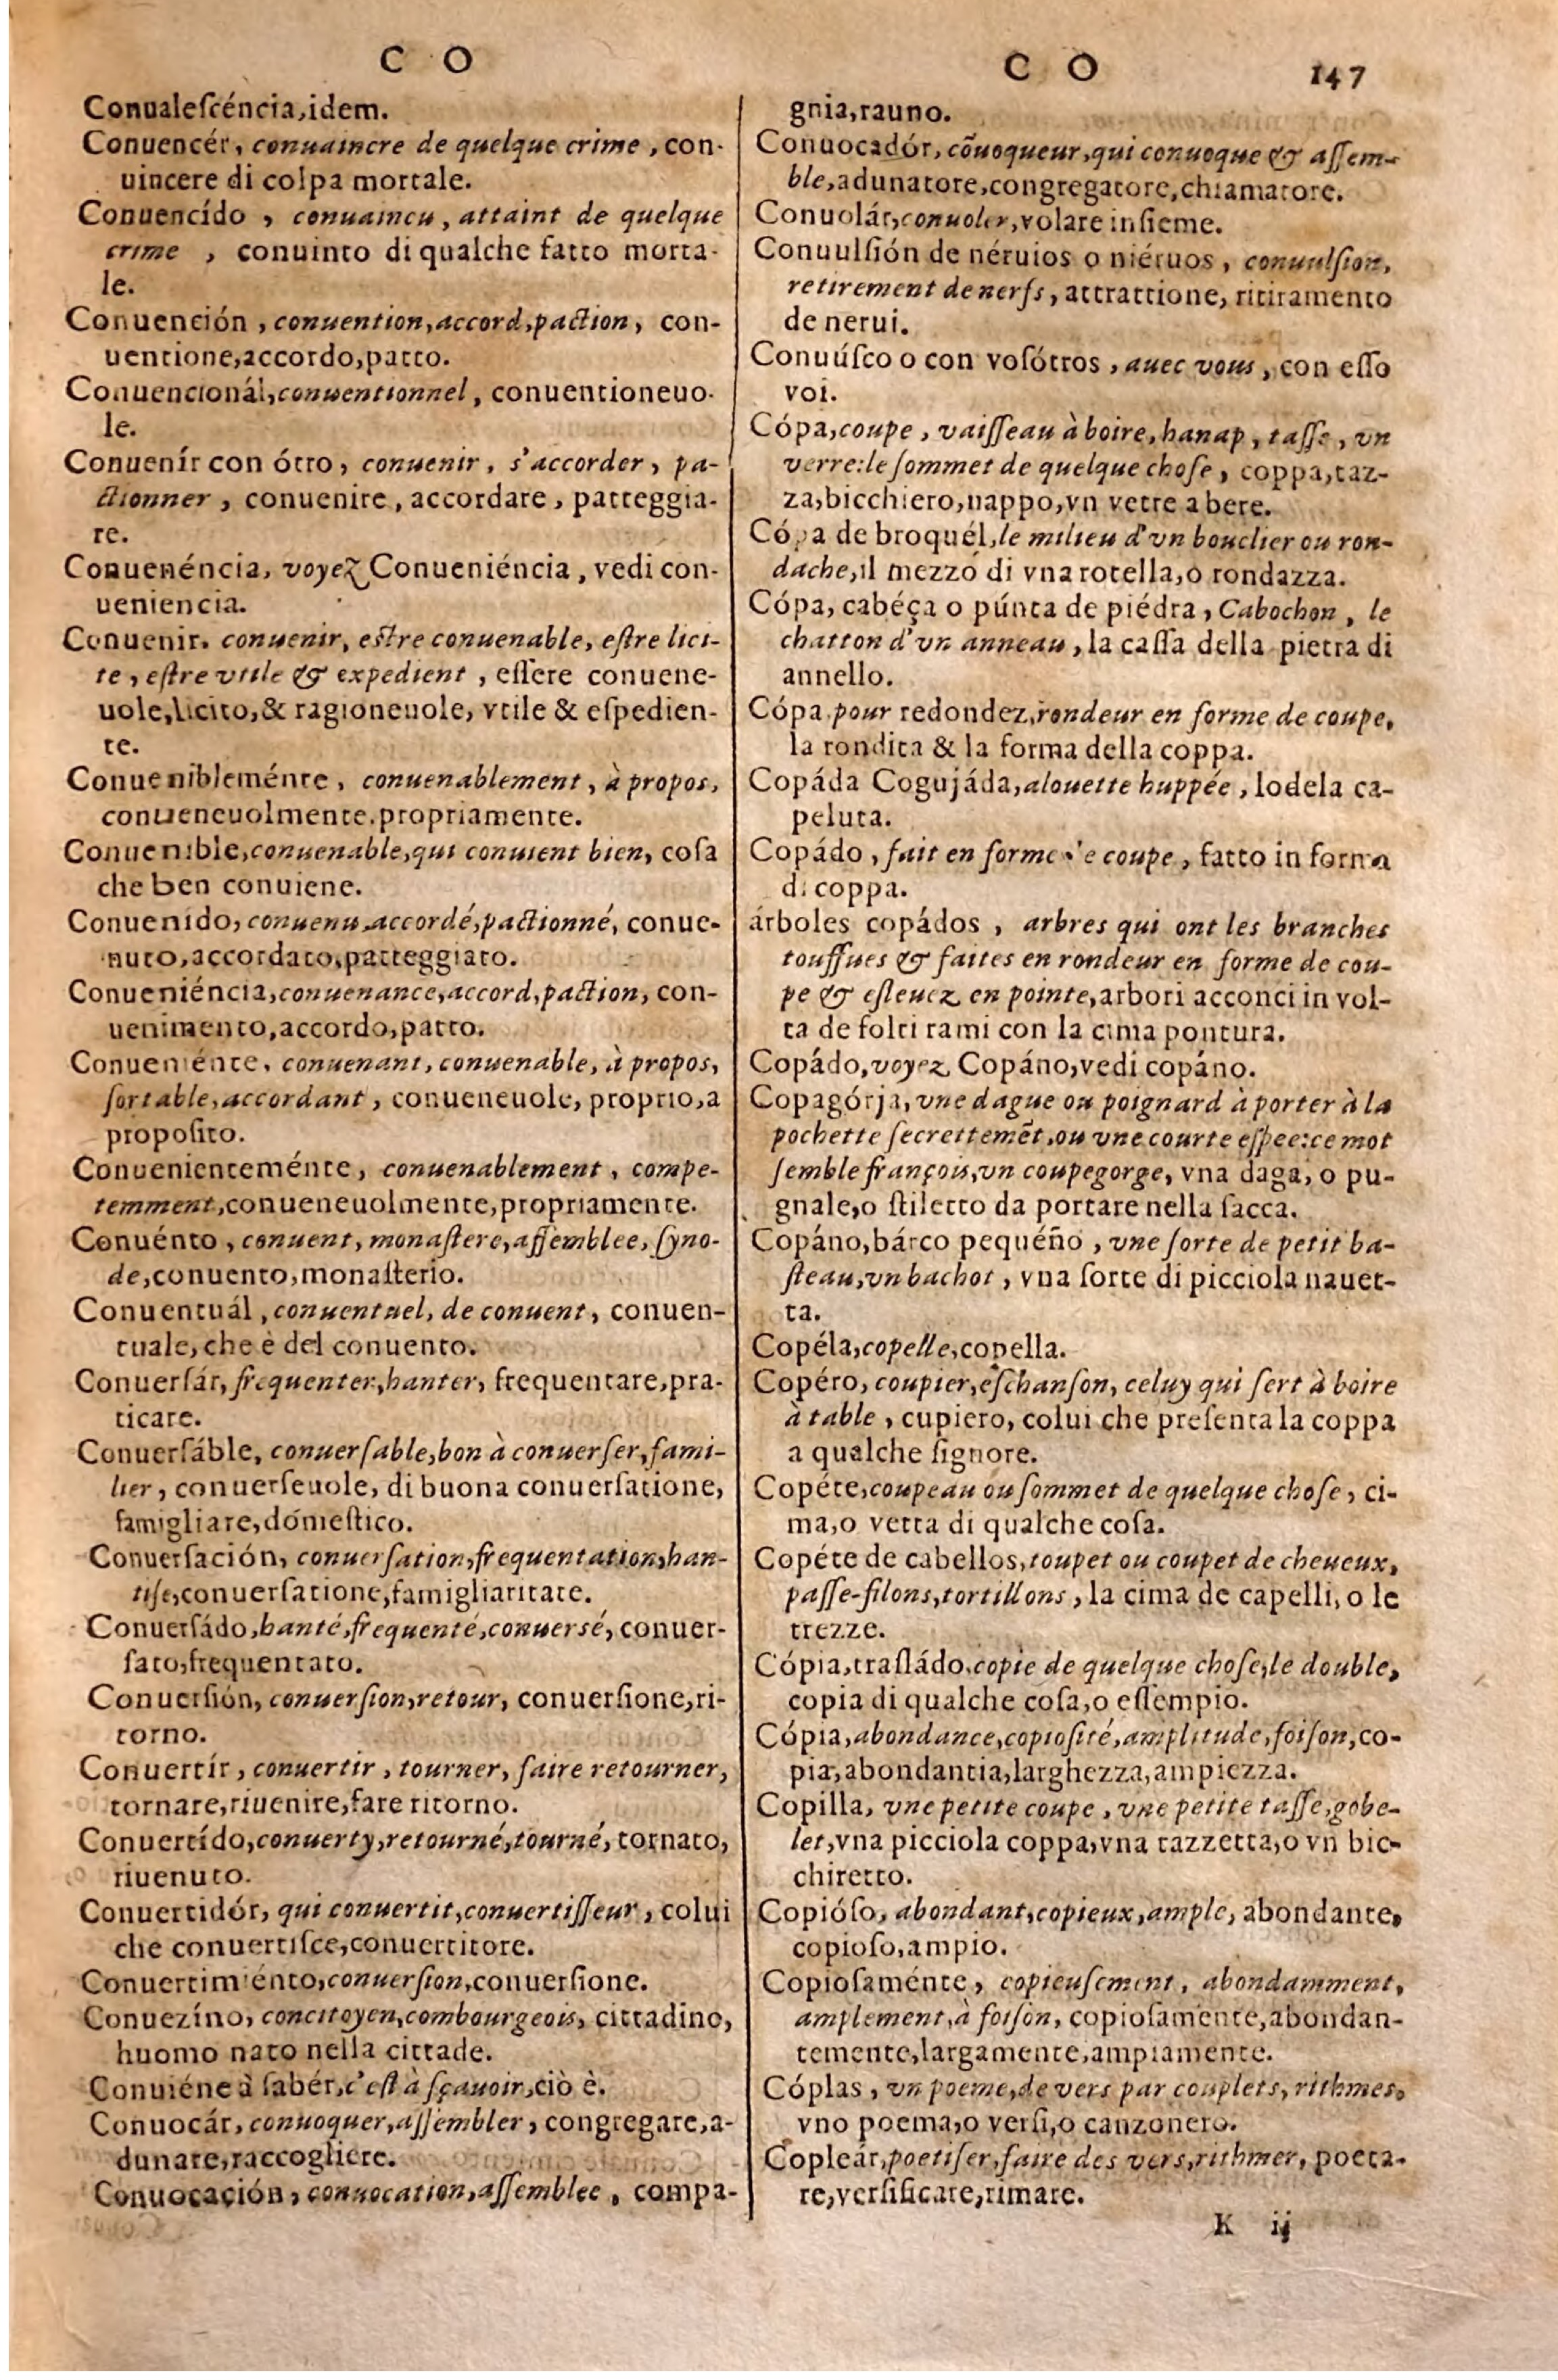 C O
Conualeſcéncia,idem.
Conuencér, conuaincre de quelque crime, con-
uincere di colpa mortale.
Conuencído, conuaincu, attaint de quelque
crime, conuinto di qualche fatto morta-
le.
Conuención, conuention,accord,paction, con-
uentione,accordo,patto.
Conuencionál,conuentionnel, conuentioneuo-
le.
Conuenír con ótro, conuenir, s'accorder, pa-
ctionner, conuenire, accordare, patteggia-
re.
Conuenéncia, voyez Conueniéncia, vedi con-
ueniencia.
Conuenir. conuenir, eſtre conuenable, eſtre lici-
te, eſtre vtile & expedient, eſſere conuene-
uole,licito,& ragioneuole, vtile & eſpedien-
te.
Conuenibleménte, conuenablement, à propos,
conueneuolmente,propriamente.
Conuenible,conuenable,qui conuient bien, coſa
che ben conuiene.
Conuenido, conuenu,accordé,pactionné, conue-
nuto,accordato,patteggiato.
Conueniéncia,conuenance,accord,paction, con-
uenimento,accordo,patto.
Conueniénte, conuenant, conuenable, à propos,
ſortable,accordant, conueneuole, proprio,a
propoſito.
Conuenienteménte, conuenablement, compe-
temment,conueneuolmente,propriamente.
Conuénto, conuent, monaſtere,aſſemblee, ſyno-
de,conuento,monaſterio.
Conuentuál, conuentuel, de conuent, conuen-
tuale, che è del conuento.
Conuerſár, frequenter,hanter, frequentare,pra-
ticare.
Conuerſáble, conuerſable,bon à conuerſer,fami-
lier, conuerſeuole, di buona conuerſatione,
famigliare,doméſtico.
Conuerſación, conuerſation,frequentation,han-
tiſe,conuerſatione,famigliaritate.
Conuerſádo,hanté,frequenté,conuersé, conuer-
ſato,frequentato.
Conuerſión, conuerſion,retour, conuerſione,ri-
torno.
Conuertír, conuertir, tourner, faire retourner,
tornare,riuenire,fare ritorno.
Conuertído,conuerty,retourné,tourné, tornato,
riuenuto.
Conuertidór, qui conuertit,conuertiſſeur, colui
che conuertiſce,conuertitore.
Conuertimiénto,conuerſion,conuerſione.
Conuezíno, concitoyen,combourgeois, cittadino,
huomo nato nella cittade.
Conuiéne à ſabér,c'eſt à ſçauoir,ciò è.
Conuocár, conuoquer,aſſembler, congregare,a-
dunare,raccogliere.
Conuocación, conuocation,aſſemblee, compa-
C O 147
gnia,rauno.
Conuocadór, cõuoqueur,qui conuoque & aſſem-
ble,adunatore,congregatore,chiamatore.
Conuolár,conuoler,volare inſieme.
Conuulſión de néruios o niéruos, conuulſion,
retirement de nerfs, attrattione, ritiramento
de nerui.
Conuúſco o con voſótros, auec vous, con eſſo
voi.
Cópa,coupe, vaiſſeau à boire,hanap, taſſe, vn
verre:le ſommet de quelque choſe, coppa,taz-
za,bicchiero,nappo,vn vetre a bere.
Cópa de broquél,le milieu d'vn bouclier ou ron-
dache,il mezzo di vna rotella,o rondazza.
Cópa, cabéça o púnta de piédra, Cabochon, le
chatton d'vn anneau, la caſſa della pietra di
annello.
Cópa pour redondez,rondeur en forme de coupe,
la rondita & la forma della coppa.
Copáda Cogujáda,alouette huppée, lodela ca-
peluta.
Copádo, fait en forme de coupe, fatto in forma
di coppa.
árboles copádos, arbres qui ont les branches
touffues & faites en rondeur en forme de cou-
pe & eſleuez en pointe,arbori acconci in vol-
ta de folti rami con la cima pontura.
Copádo,voyez Copáno,vedi copáno.
Copagórja, vne dague ou poignard à porter à la
pochette ſecrettemẽt,ou vne courte eſpee:ce mot
ſemble françois,vn coupegorge, vna daga, o pu-
gnale,o ſtiletto da portare nella ſacca.
Copáno,bárco pequéño, vne ſorte de petit ba-
ſteau,vn bachot, vna ſorte di picciola nauet-
ta.
Copéla,copelle,copella.
Copéro, coupier,eſchanſon, celuy qui ſert à boire
à table, cupiero, colui che preſenta la coppa
a qualche ſignore.
Copéte,coupeau ou ſommet de quelque choſe, ci-
ma,o vetta di qualche coſa.
Copéte de cabellos,toupet ou coupet de cheueux,
paſſe-filons,tortillons, la cima de capelli, o le
trezze.
Cópia,traſládo,copie de quelque choſe,le double,
copia di qualche coſa,o eſſempio.
Cópia,abondance,copioſité,amplitude,foiſon,co-
pia,abondantia,larghezza,ampiezza.
Copilla, vne petite coupe, vne petite taſſe,gobe-
let,vna picciola coppa,vna tazzetta,o vn bic-
chiretto.
Copióſo, abondant,copieux,ample, abondante,
copioſo,ampio.
Copioſaménte, copieuſement, abondamment,
amplement,à foiſon, copioſamente,abondan-
temente,largamente,ampiamente.
Cóplas, vn poeme,de vers par couplets, rithmes,
vno poema,o verſi,o canzonero.
Copleár,poetiſer,faire des vers,rithmer, poeta-
re,verſificare,rimare.
K ij